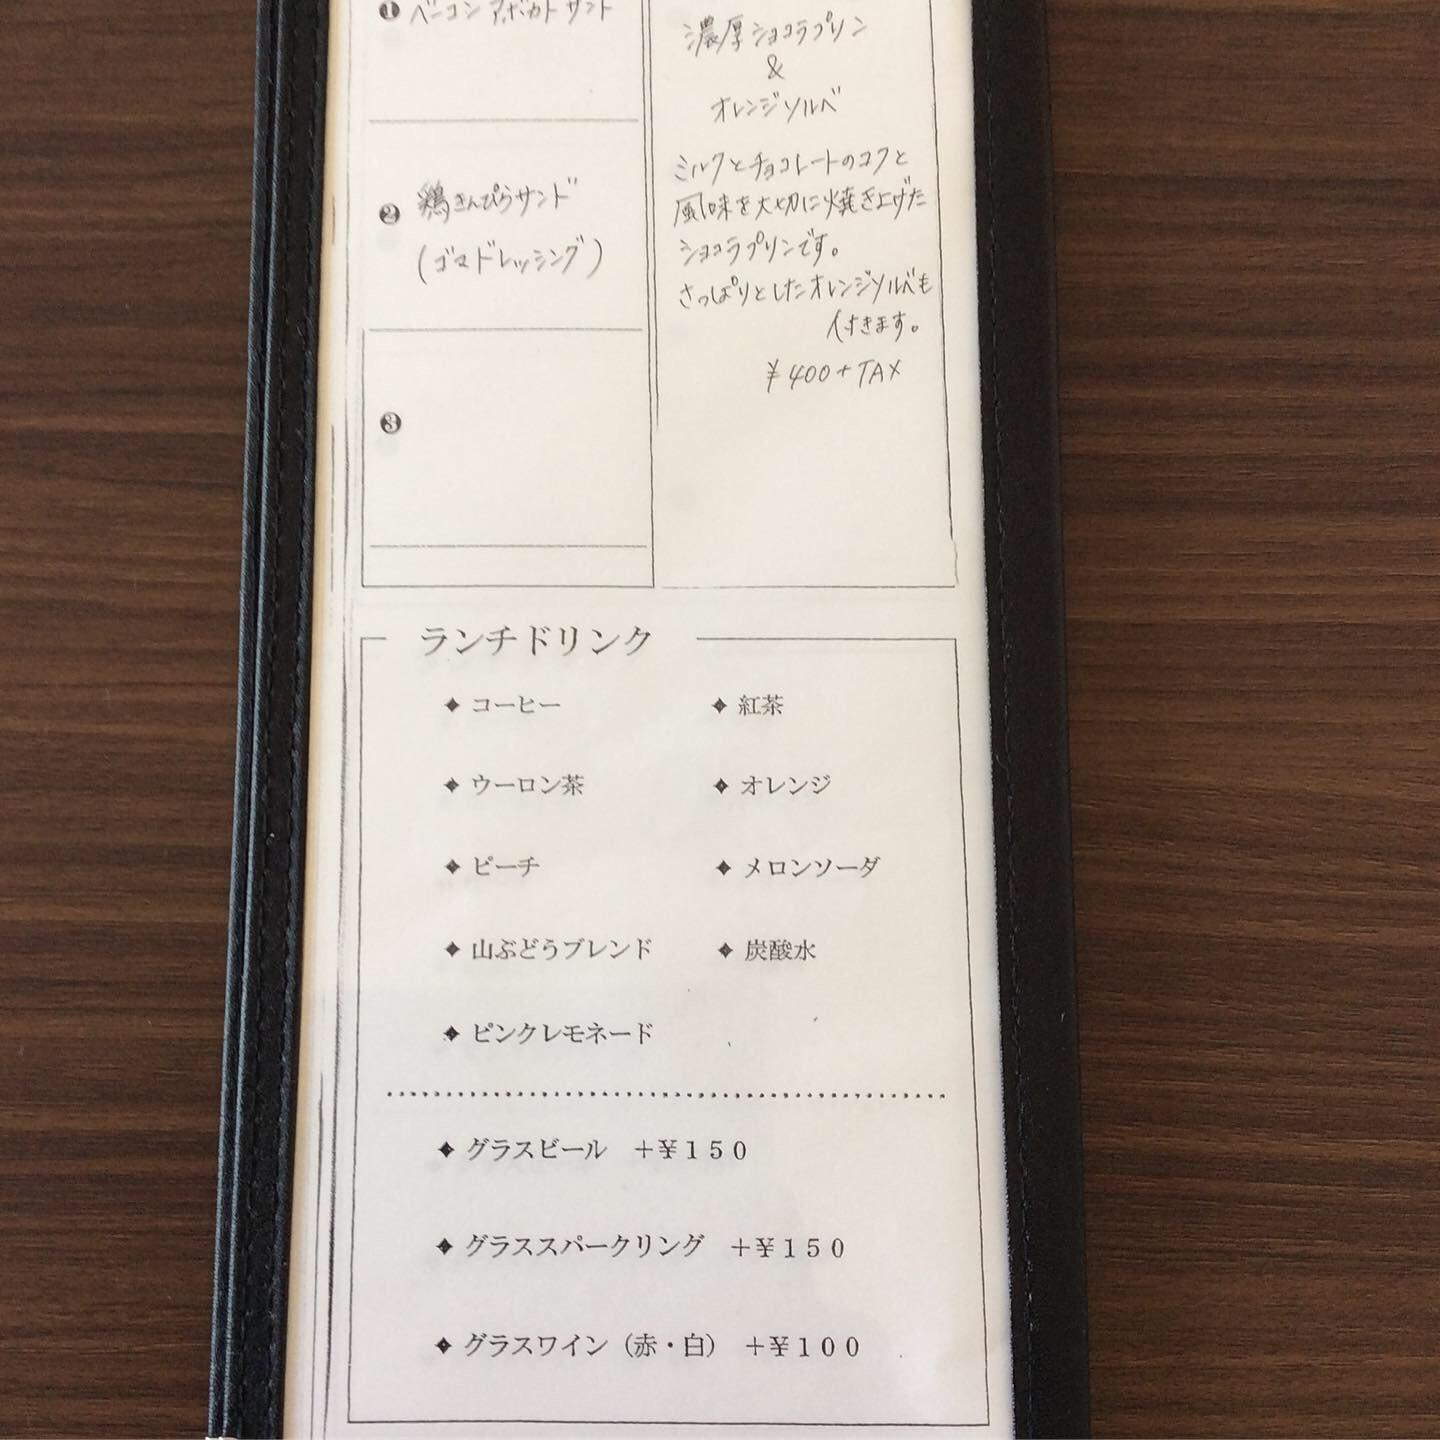 ❶ ベーコン アボカド サンド
❷ 鶏きんぴらサンド
(ゴマドレッシング)
❸
濃厚ショコラプリン
&
オレンジソルベ
ミルクとチョコレートのコクと
風味を大切に焼き上げた
ショコラプリンです。
さっぱりとしたオレンジソルベも
付きます。
¥400+TAX
ランチドリンク
◆ コーヒー ◆ 紅茶
◆ ウーロン茶 ◆ オレンジ
◆ ピーチ ◆ メロンソーダ
◆ 山ぶどうブレンド ◆ 炭酸水
◆ ピンクレモネード
◆ グラスビール ＋￥１５０
◆ グラススパークリング ＋￥１５０
◆ グラスワイン（赤・白） ＋￥１００